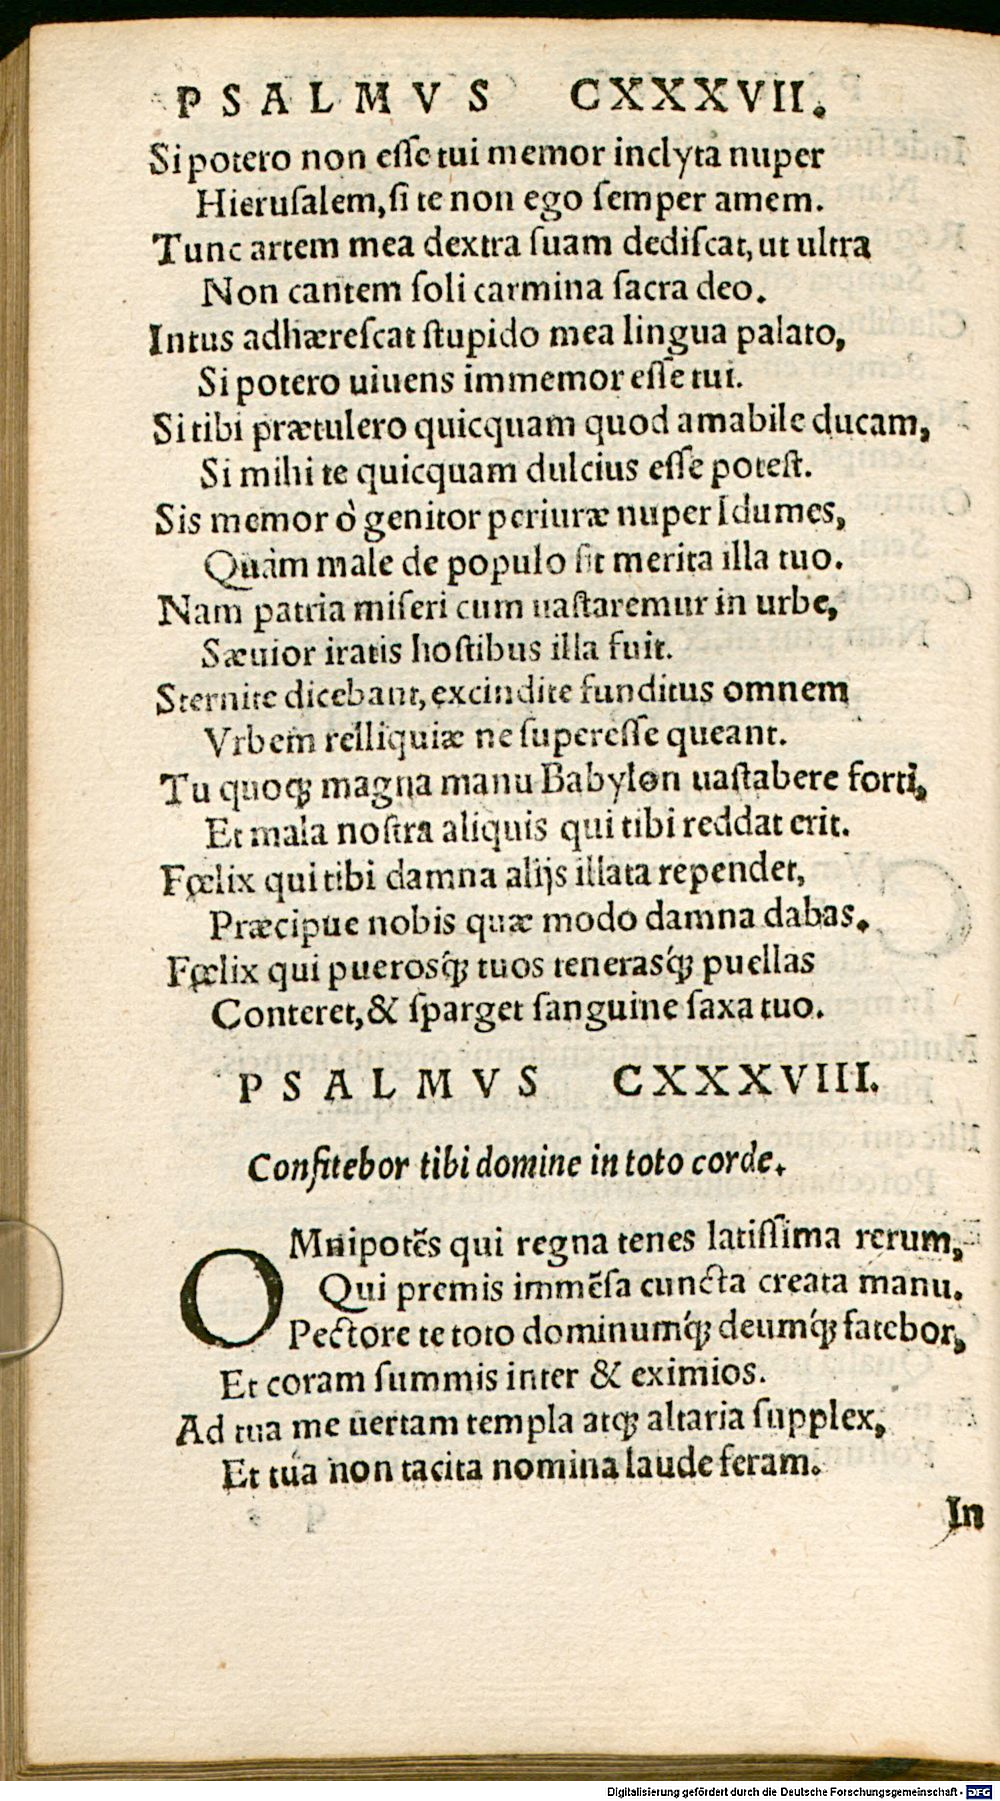 PSALMVS CXXXVII.
Si potero non eſſe tui memor inclyta nuper
Hieruſalem, ſi te non ego ſemper amem.
Tunc artem mea dextra ſuam dediſcat, ut ultra
Non cantem ſoli carmina ſacra deo.
Intus adhæreſcat ſtupido mea lingua palato,
Si potero uiuens immemor eſſe tui.
Si tibi prætulero quicquam quod amabile ducam,
Si mihi te quicquam dulcius eſſe poteſt.
Sis memor ò genitor periuræ nuper Idumes,
Quàm male de populo ſit merita illa tuo.
Nam patria miſeri cum uaſtaremur in urbe,
Sæuior iratis hoſtibus illa fuit.
Sternite dicebant, excindite funditus omnem
Vrbem relliquiæ ne ſupereſſe queant.
Tu quoqꝫ magna manu Babylon uaſtabere forti,
Et mala noſtra aliquis qui tibi reddat erit.
Fœlix qui tibi damna alijs illata rependet,
Præcipue nobis quæ modo damna dabas.
Fœlix qui pueros'qꝫ tuos teneras'qꝫ puellas
Conteret, & ſparget ſanguine ſaxa tuo.
PSALMVS CXXXVIII.
Confitebor tibi domine in toto corde.
OMnipotẽs qui regna tenes latiſſima rerum,
Qui premis immẽſa cuncta creata manu.
Pectore te toto dominum'qꝫ deum'qꝫ fatebor,
Et coram ſummis inter & eximios.
Ad tua me uertam templa atqꝫ altaria ſupplex,
Et tua non tacita nomina laude feram.
In
Digitalisierung gefördert durch die Deutsche Forschungsgemeinschaft - DFG